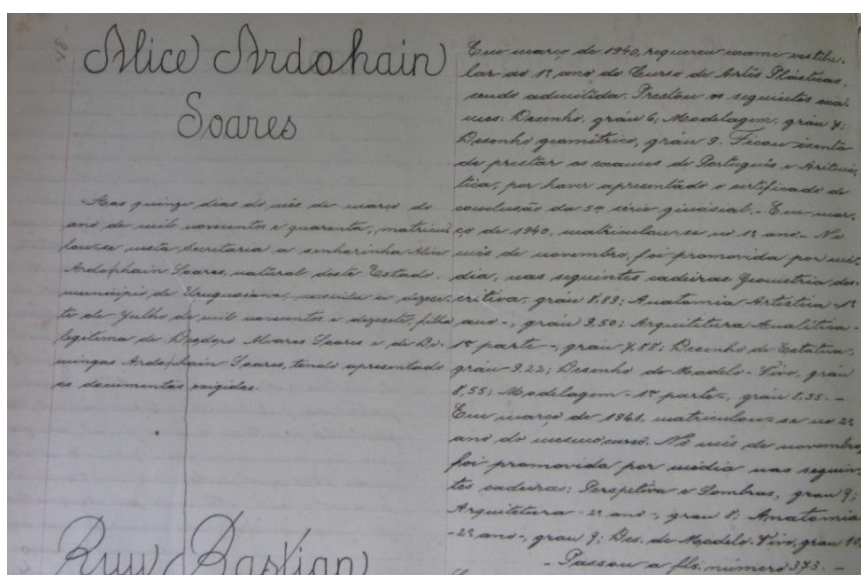 Alice Ardohain
Soares
Aos quinze dias do mês de março do
ano de mil novecentos e quarenta, matricu
lou-se nesta Secretaria a senhorinha Alice
Ardohain Soares, natural deste Estado,
município de Uruguaiana, nascida a dezese
te de Julho de mil novecentos e dezesete, filha
legitima de Alvares Soares e de Do-
mingas Ardohain Soares, tendo apresentado
os documentos exigidos.
Ruy Bastian
Em março de 1940, requereu exame vestibu-
lar ao 1º ano do Curso de Artes Plásticas,
sendo admitida. Prestou os seguintes exa-
mes: Desenho, gráu 6; Modelagem, gráu 7;
Desenho geométrico, gráu 9. Ficou isenta
de prestar os exames de Português e Aritmé-
tica, por haver apresentado o certificado de
conclusão da 5ª série ginasial. - Em mar-
ço de 1940, matriculou-se no 1º ano. - No
mês de novembro, foi promovida por mé-
dia, nas seguintes cadeiras: Geometria des-
critiva, gráu 8,83; Anatomia Artística - 1º
ano -, gráu 9,50; Arquitetura Analítica -
1ª parte -, gráu 7,88; Desenho de Estatua,
gráu 9,22; Desenho de Modelo-Vivo, gráu
8,55; Modelagem - 1ª parte -, gráu 8,55. -
Em março de 1941, matriculou-se no 2º
ano do mesmo curso. No mês de novembro,
foi promovida por média nas seguin-
tes cadeiras: Perspetiva e Sombras, grau 9;
Arquitetura - 2º ano -, grau 8; Anatomia
- 2º ano -, grau 9; Des. de Modelo-Vivo, grau 10,
- Passou a fls. número 373. -